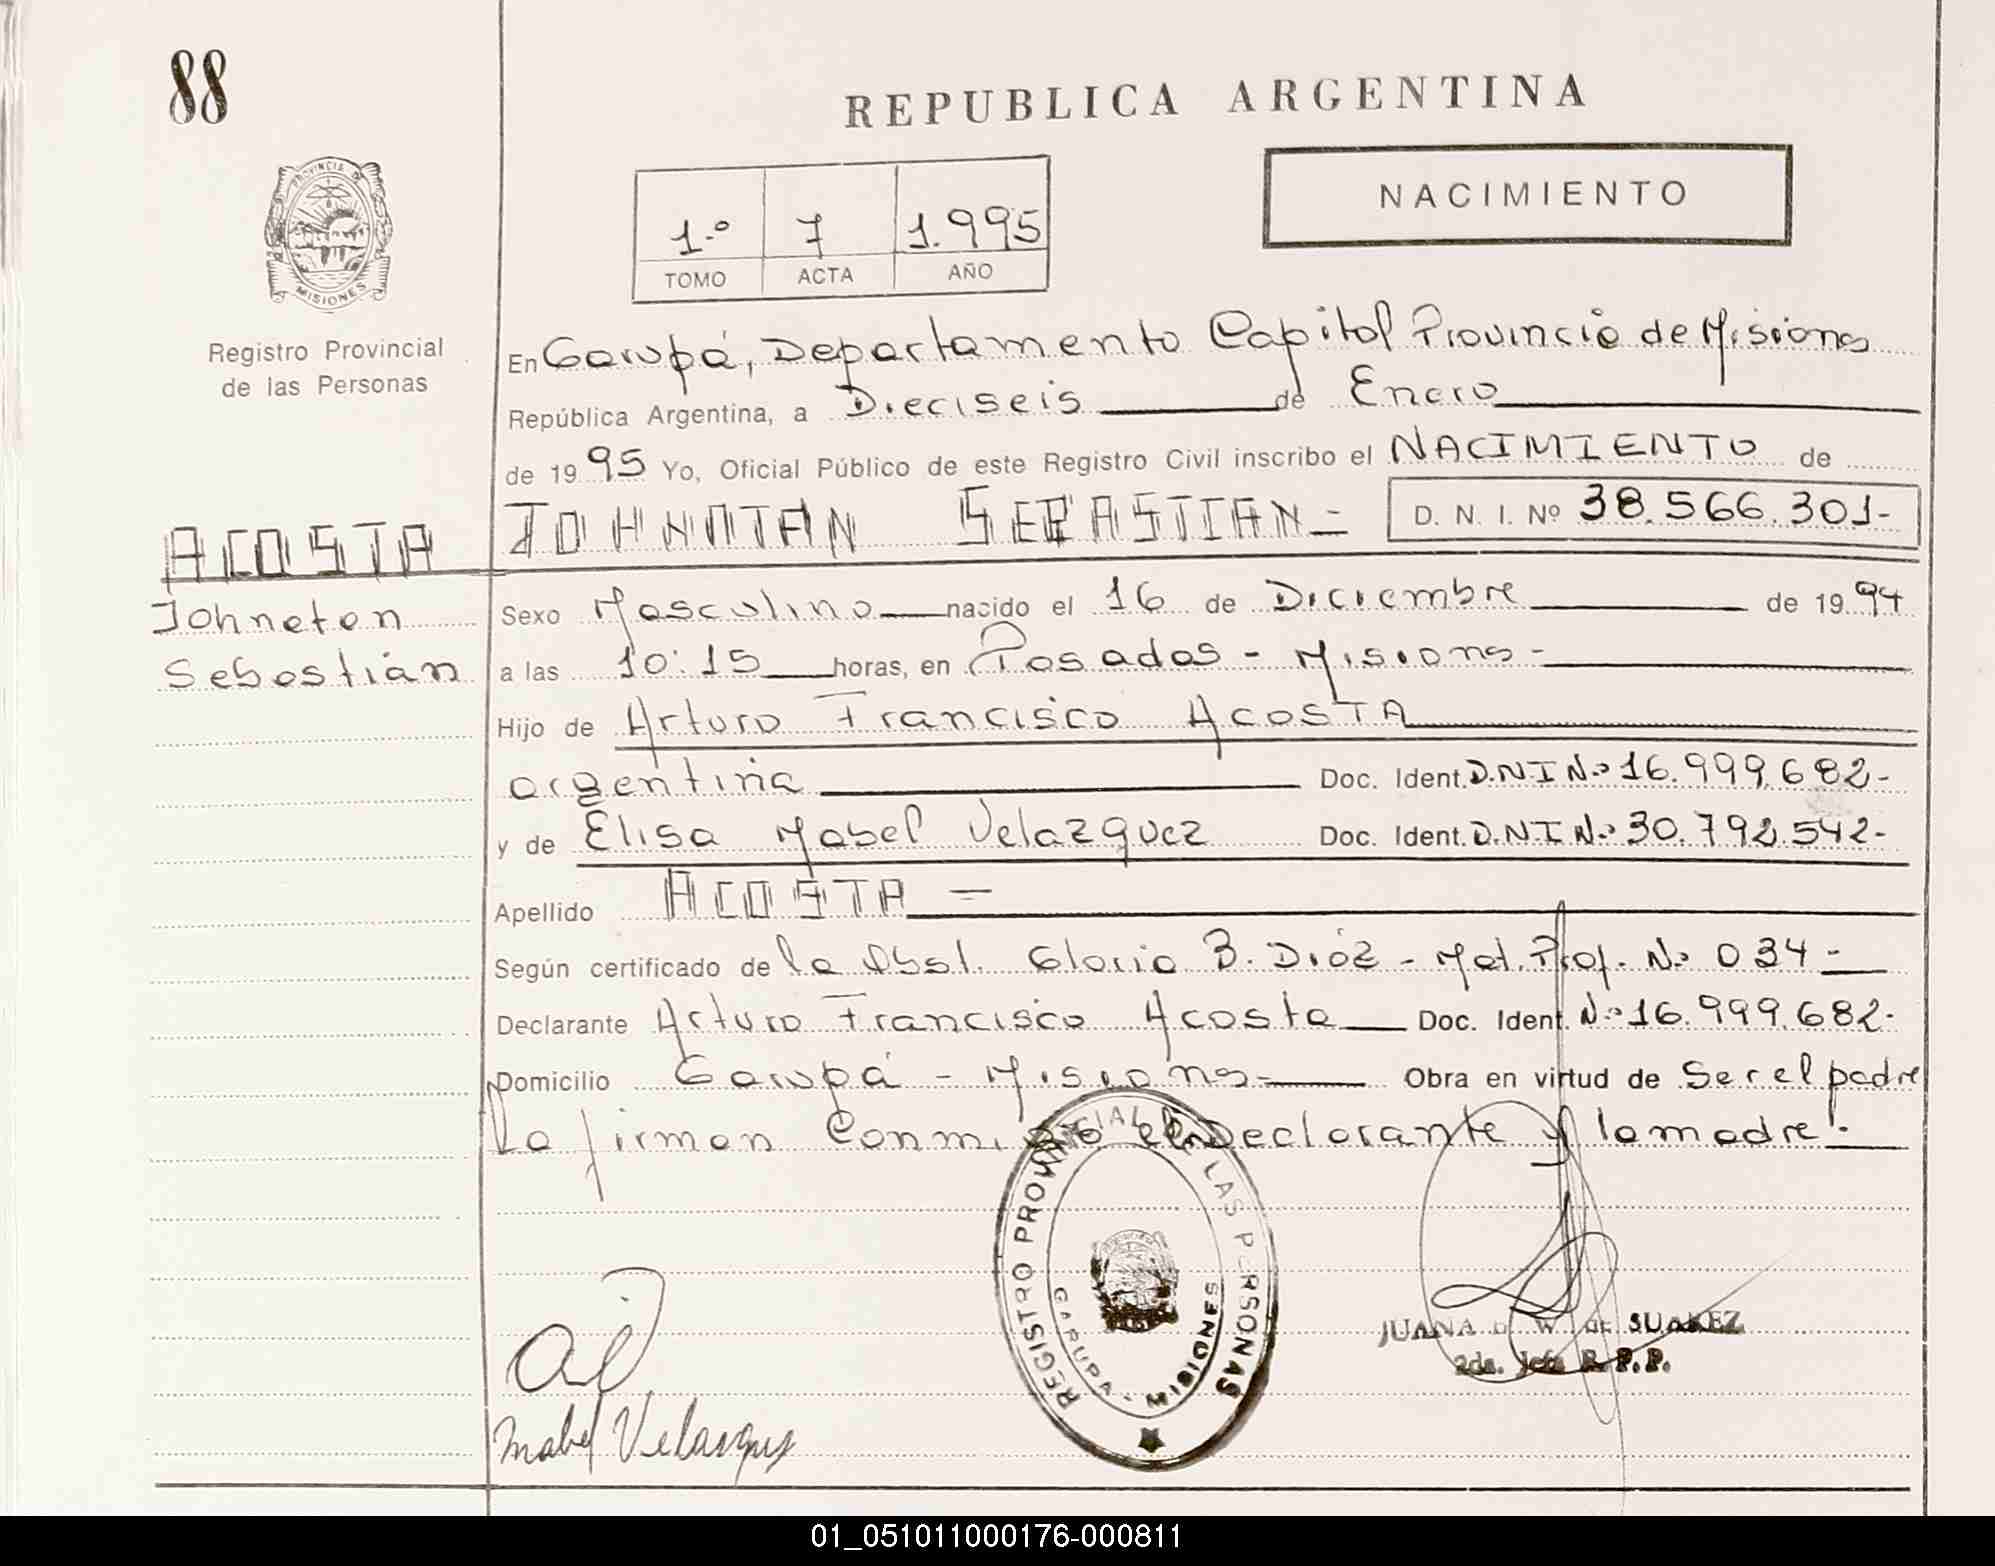 88
REPUBLICA ARGENTINA
PROVINCIA DE
MISIONES
1.º 7 1.995
TOMO ACTA AÑO
NACIMIENTO
Registro Provincial
de las Personas
En Garupá, Departamento Capital Provincia de Misiones
República Argentina, a Dieciseis de Enero
de 1995 Yo, Oficial Público de este Registro Civil inscribo el NACIMIENTO de
ACOSTA JOHNATAN SEBASTIAN= D. N. I. Nº 38.566.301-
Johnatan
Sebastián
Sexo Masculino nacido el 16 de Diciembre de 1994
a las 10:15 horas, en Posadas - Misiones -
Hijo de Arturo Francisco ACOSTA
argentina Doc. Ident. D.N.I Nº 16.999.682-
y de Elisa Mabel Velazquez Doc. Ident. D.N.I Nº 30.792.542-
Apellido ACOSTA =
Según certificado de la Obst. Gloria B. Dióz - Mat. Prof. Nº 034-
Declarante Arturo Francisco Acosta Doc. Ident. Nº 16.999.682-
Domicilio Garupá - Misiones- Obra en virtud de Ser el padre
La firman Conmigo el Declarante y la madre.-
REGISTRO PROVINCIAL DE LAS PERSONAS
GARUPA - MISIONES
JUANA W. DE SUAREZ
2da. Jefa R.P.P.
Mabel Velazquez
01_051011000176-000811